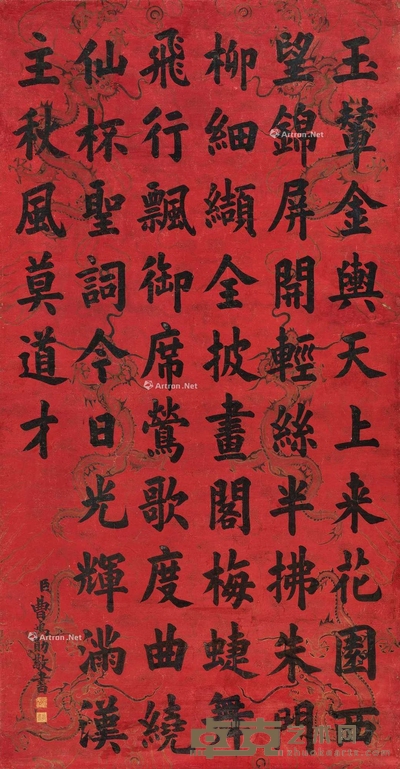 玉輦金輿天上来花園西
望錦屏開輕絲半拂朱門
柳細纈全披畫閣梅蜨舞
飛行飄御席鶯歌度曲繞
仙杯聖詞今日光輝滿漢
主秋風莫道才
臣曹鴻勛敬書
Artron.Net
Artron.Net
Artron.Net
Artron.Net